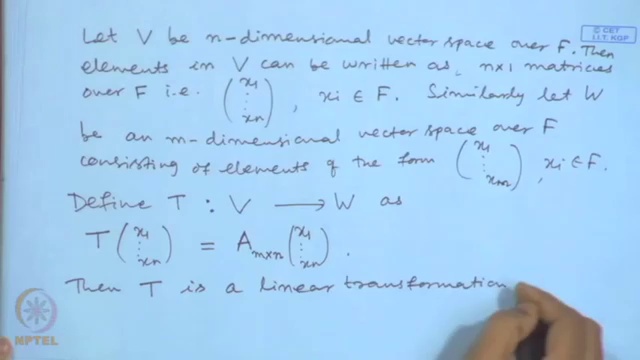 © CET
I.I.T. KGP
Let V be n-dimensional vector space over F. Then
elements in V can be written as, n×1 matrices
over F i.e. (x₁ ⋮ xₙ) , xᵢ ∈ F. Similarly let W
be an m-dimensional vector space over F
consisting of elements of the form (x₁ ⋮ xₘ) , xᵢ ∈ F.
Define T : V ⟶ W as
T(x₁ ⋮ xₙ) = Aₘₓₙ (x₁ ⋮ xₙ) .
Then T is a linear transformation
NPTEL